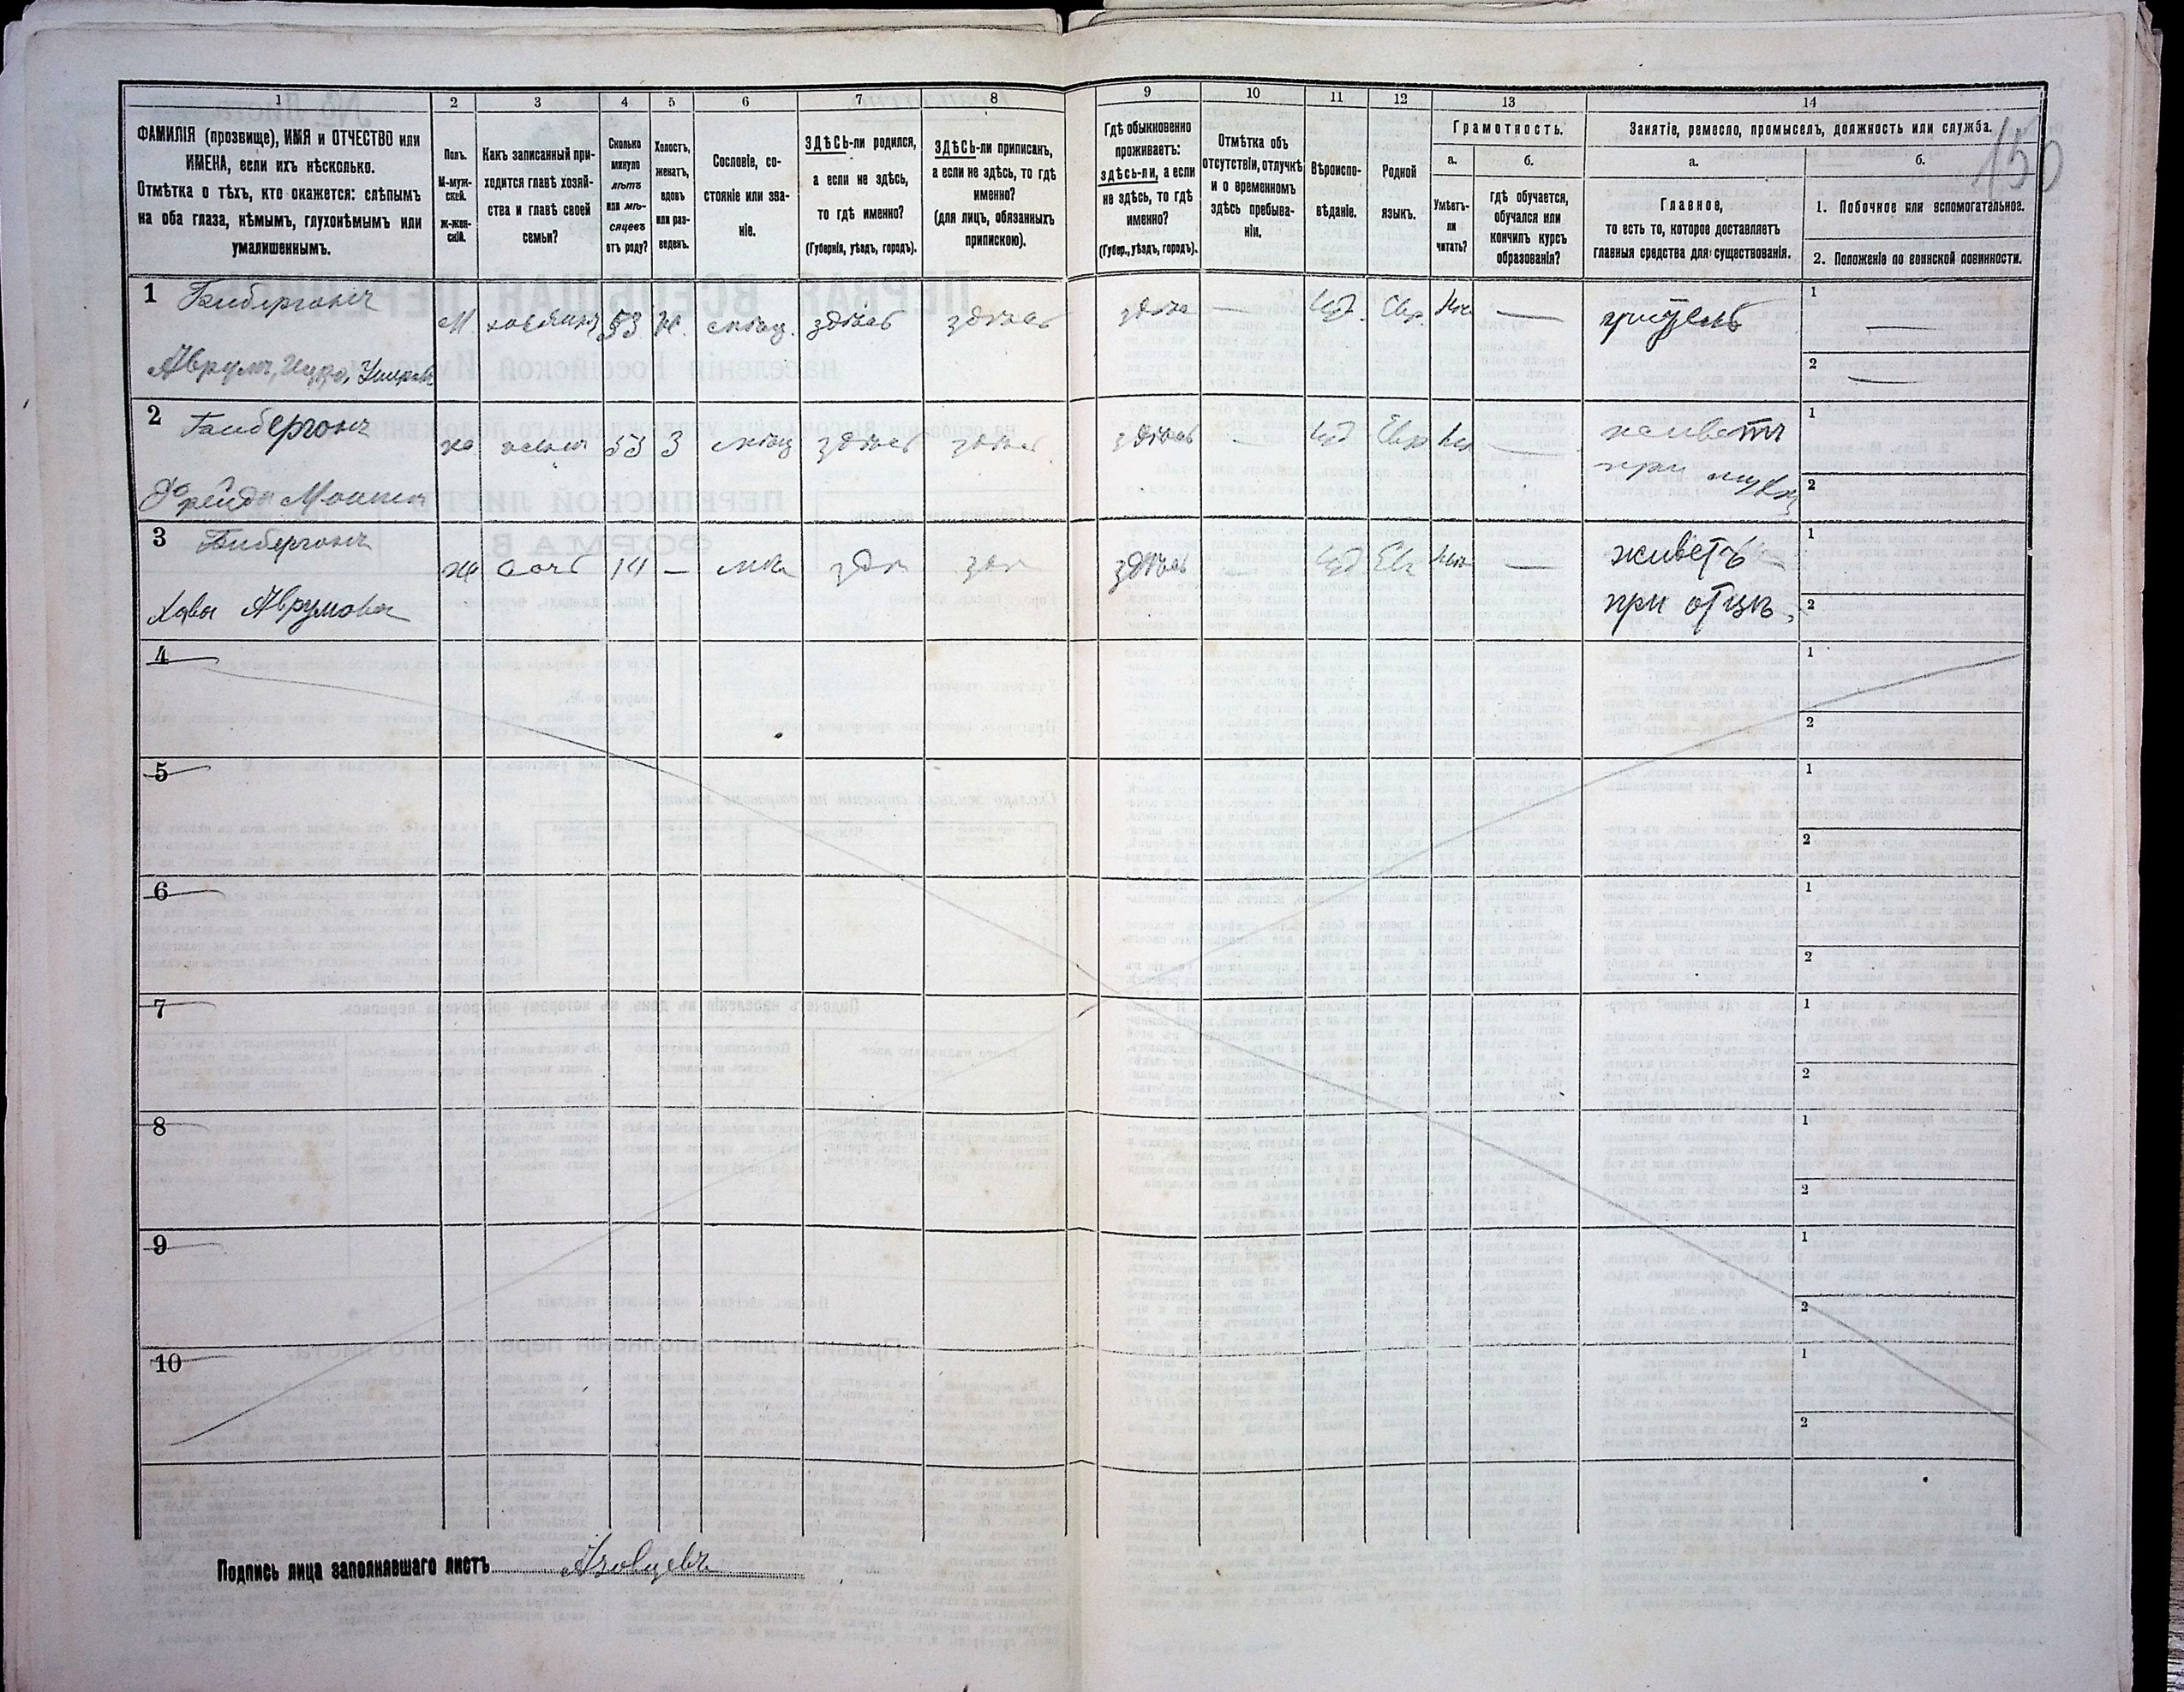 1 2 3 4 5 6 7 8 9 10 11 12 13 14
ФАМИЛІЯ (прозвище), ИМЯ и ОТЧЕСТВО или
ИМЕНА, если ихъ нѣсколько.
Отмѣтка о тѣхъ, кто окажется: слѣпымъ
на оба глаза, нѣмымъ, глухонѣмымъ или
умалишеннымъ.
Полъ.
М-муж-
ской.
ж-жен-
скій.
Какъ записанный при-
ходится главѣ хозяй-
ства и главѣ своей
семьи?
Сколько
минуло
лѣтъ
или мѣ-
сяцевъ
отъ роду?
Холостъ,
женатъ,
вдовъ
или раз-
веденъ.
Сословіе, со-
стояніе или зва-
ніе.
ЗДѢСЬ-ли родился,
а если не здѣсь,
то гдѣ именно?
(Губернія, уѣздъ, городъ).
ЗДѢСЬ-ли приписанъ,
а если не здѣсь, то гдѣ
именно?
(для лицъ, обязанныхъ
припискою).
Гдѣ обыкновенно
проживаетъ:
здѣсь-ли, а если
не здѣсь, то гдѣ
именно?
(Губер., уѣздъ, городъ).
Отмѣтка объ
отсутствіи, отлучкѣ
и о временномъ
здѣсь пребыва-
ніи.
Вѣроиспо-
вѣданіе.
Родной
языкъ.
Грамотность.
а.
Умѣетъ-
ли
читать?
б.
гдѣ обучается,
обучался или
кончилъ курсъ
образованія?
Занятіе, ремесло, промыселъ, должность или служба.
150
а.
Главное,
то есть то, которое доставляетъ
главныя средства для существованія.
б.
1. Побочное или вспомогательное.
2. Положеніе по воинской повинности.
1
М. хозяинъ 53 ж. мѣщ. здѣсь здѣсь здѣсь — Іуд. Евр — учитель 1 —
Аврумъ, 2 —
2
же жена 53 З мѣщ здѣсь здѣсь здѣсь — Іуд Евр — живетъ 1
Фрейда при мужѣ 2
3
же дочь 14 — здѣсь — Іуд Ев — живетъ 1
Хава Аврумова при отцѣ. 2
4 1
2
5 1
2
6 1
2
7 1
2
8 1
2
9 1
2
10 1
2
Подпись лица заполнявшаго листъ Азовцевъ